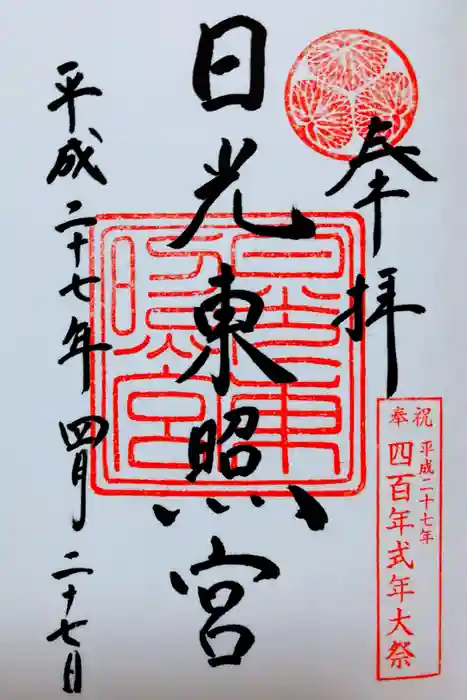 奉拝
日光東照宮
平成二十七年四月二十七日
祝
奉
平成二十七年
四百年式年大祭
日光東照宮